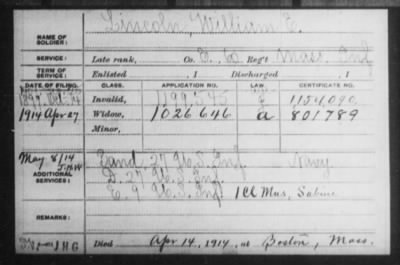 Lincoln, William E.
NAME OF SOLDIER:
SERVICE: Late rank, Co. E, 60 Reg't Mass. Inf.
TERM OF SERVICE: Enlisted , 1 Discharged , 1
DATE OF FILING. CLASS. APPLICATION NO. LAW. CERTIFICATE NO.
1897 Oct Invalid, 1199545 1154090
1914 Apr 27 Widow, 1026646 a 801789
Minor,
May 8/14
ADDITIONAL SERVICES: Band 27 U.S. Inf. Navy
D. 27 U.S. Inf.
E. 9 U.S. Inf. 1 Cl Mus, Sabine
REMARKS:
Died Apr 14, 1914, at Boston, Mass.